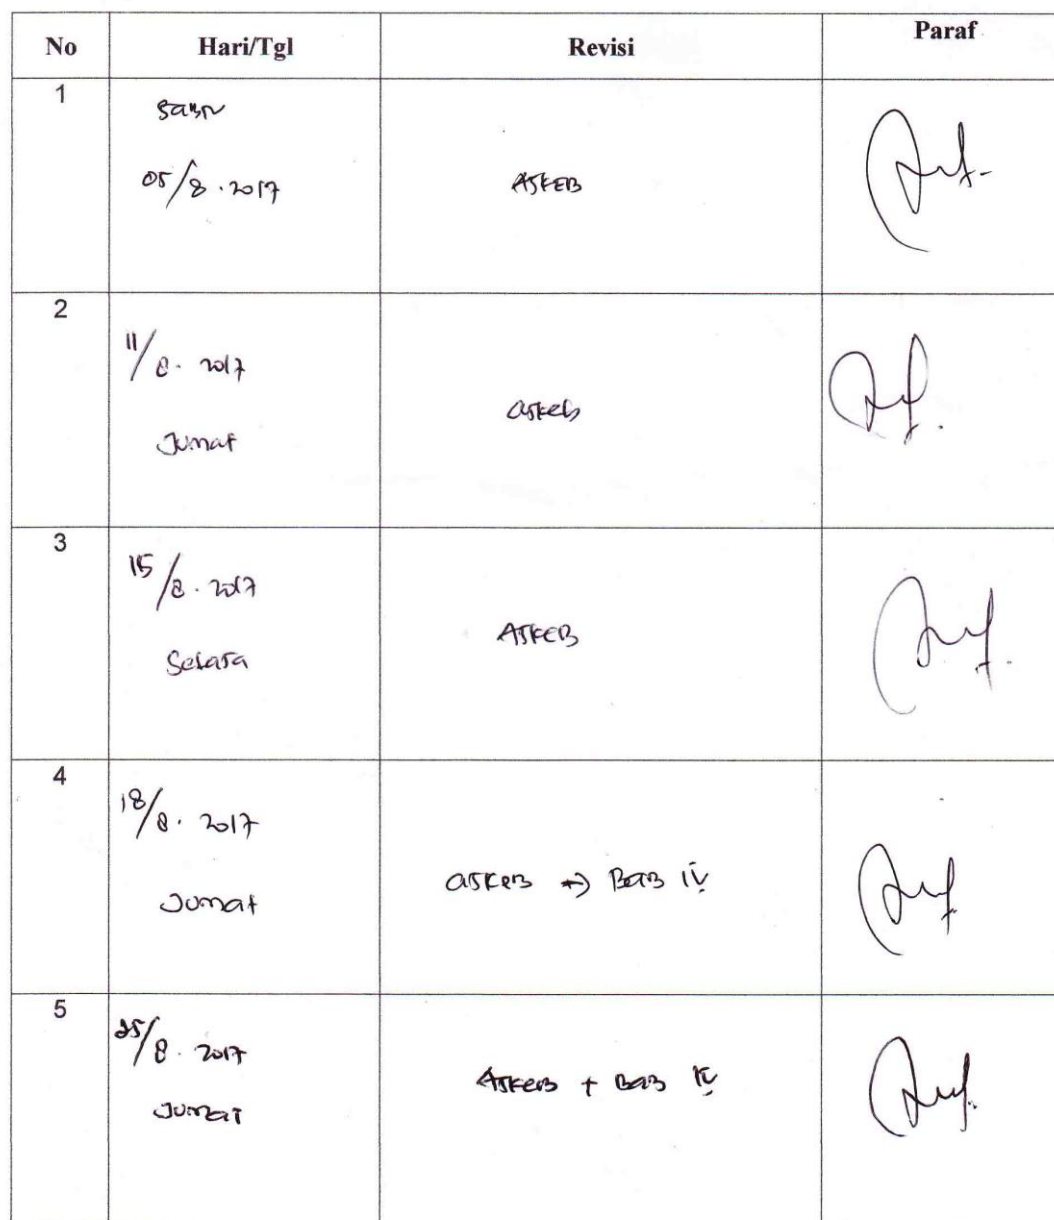 No Hari/Tgl Revisi Paraf
1
Sabtu
05/8.2017
ASKEB
2
11/8.2017
Jumat
askeb
3
15/8.2017
Selasa
ASKEB
4
18/8.2017
Jumat
askeb → Bab IV
5
25/8.2017
Jumat
Askeb + Bab IV